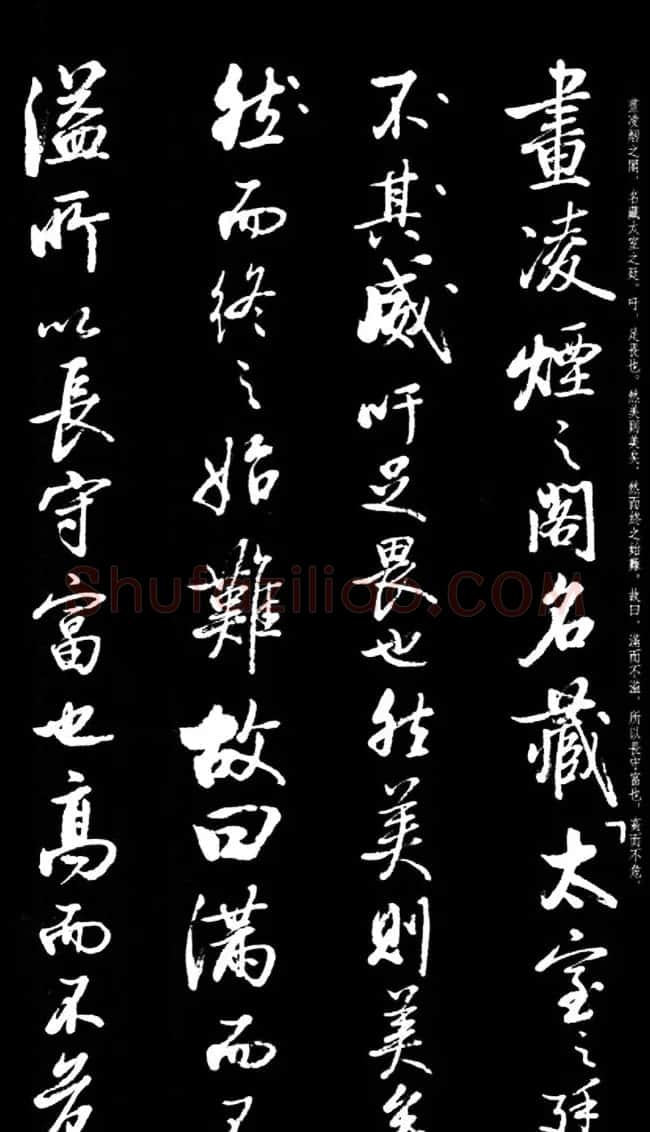 畫凌烟之閣，名藏太室之廷。吁，足畏也。然美則美矣，然而終之始難。故曰，滿而不溢，所以長守富也，高而不危，
畫凌煙之閣名藏太室之廷
不其威吁足畏也然美則美矣
然而終之始難故曰滿而不
溢所以長守富也高而不危
ShufaZiliao.COM